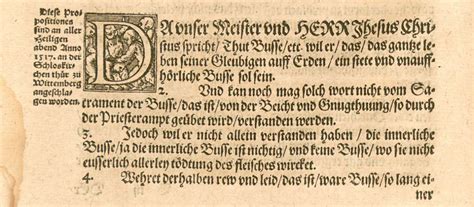 Diese Pro
positiones
sind an aller
Heiligen
abend Anno
1517. an der
Schloskir
chen thür zu
Wittemberg
angeschla
gen worden.
DA vnser Meister vnd HERR Jhesus Chri
stus spricht / Thut Busse / etc. wil er / das / das gantze le
ben seiner Gleubigen auff Erden / ein stete vnd vnauff
hörliche Busse sol sein.
2. Vnd kan noch mag solch wort nicht vom Sa
crament der Busse / das ist / von der Beicht vnd Gnugthuung / so durch
der Priesterampt geübet wird / verstanden werden.
3. Jedoch wil er nicht allein verstanden haben / die innerliche
Busse / ja die innerliche Busse ist nichtig / vnd keine Busse / wo sie nicht
eusserlich allerley tödtung des fleisches wircket.
4. Wehret derhalben rew vnd leid / das ist / ware Busse / so lang einer